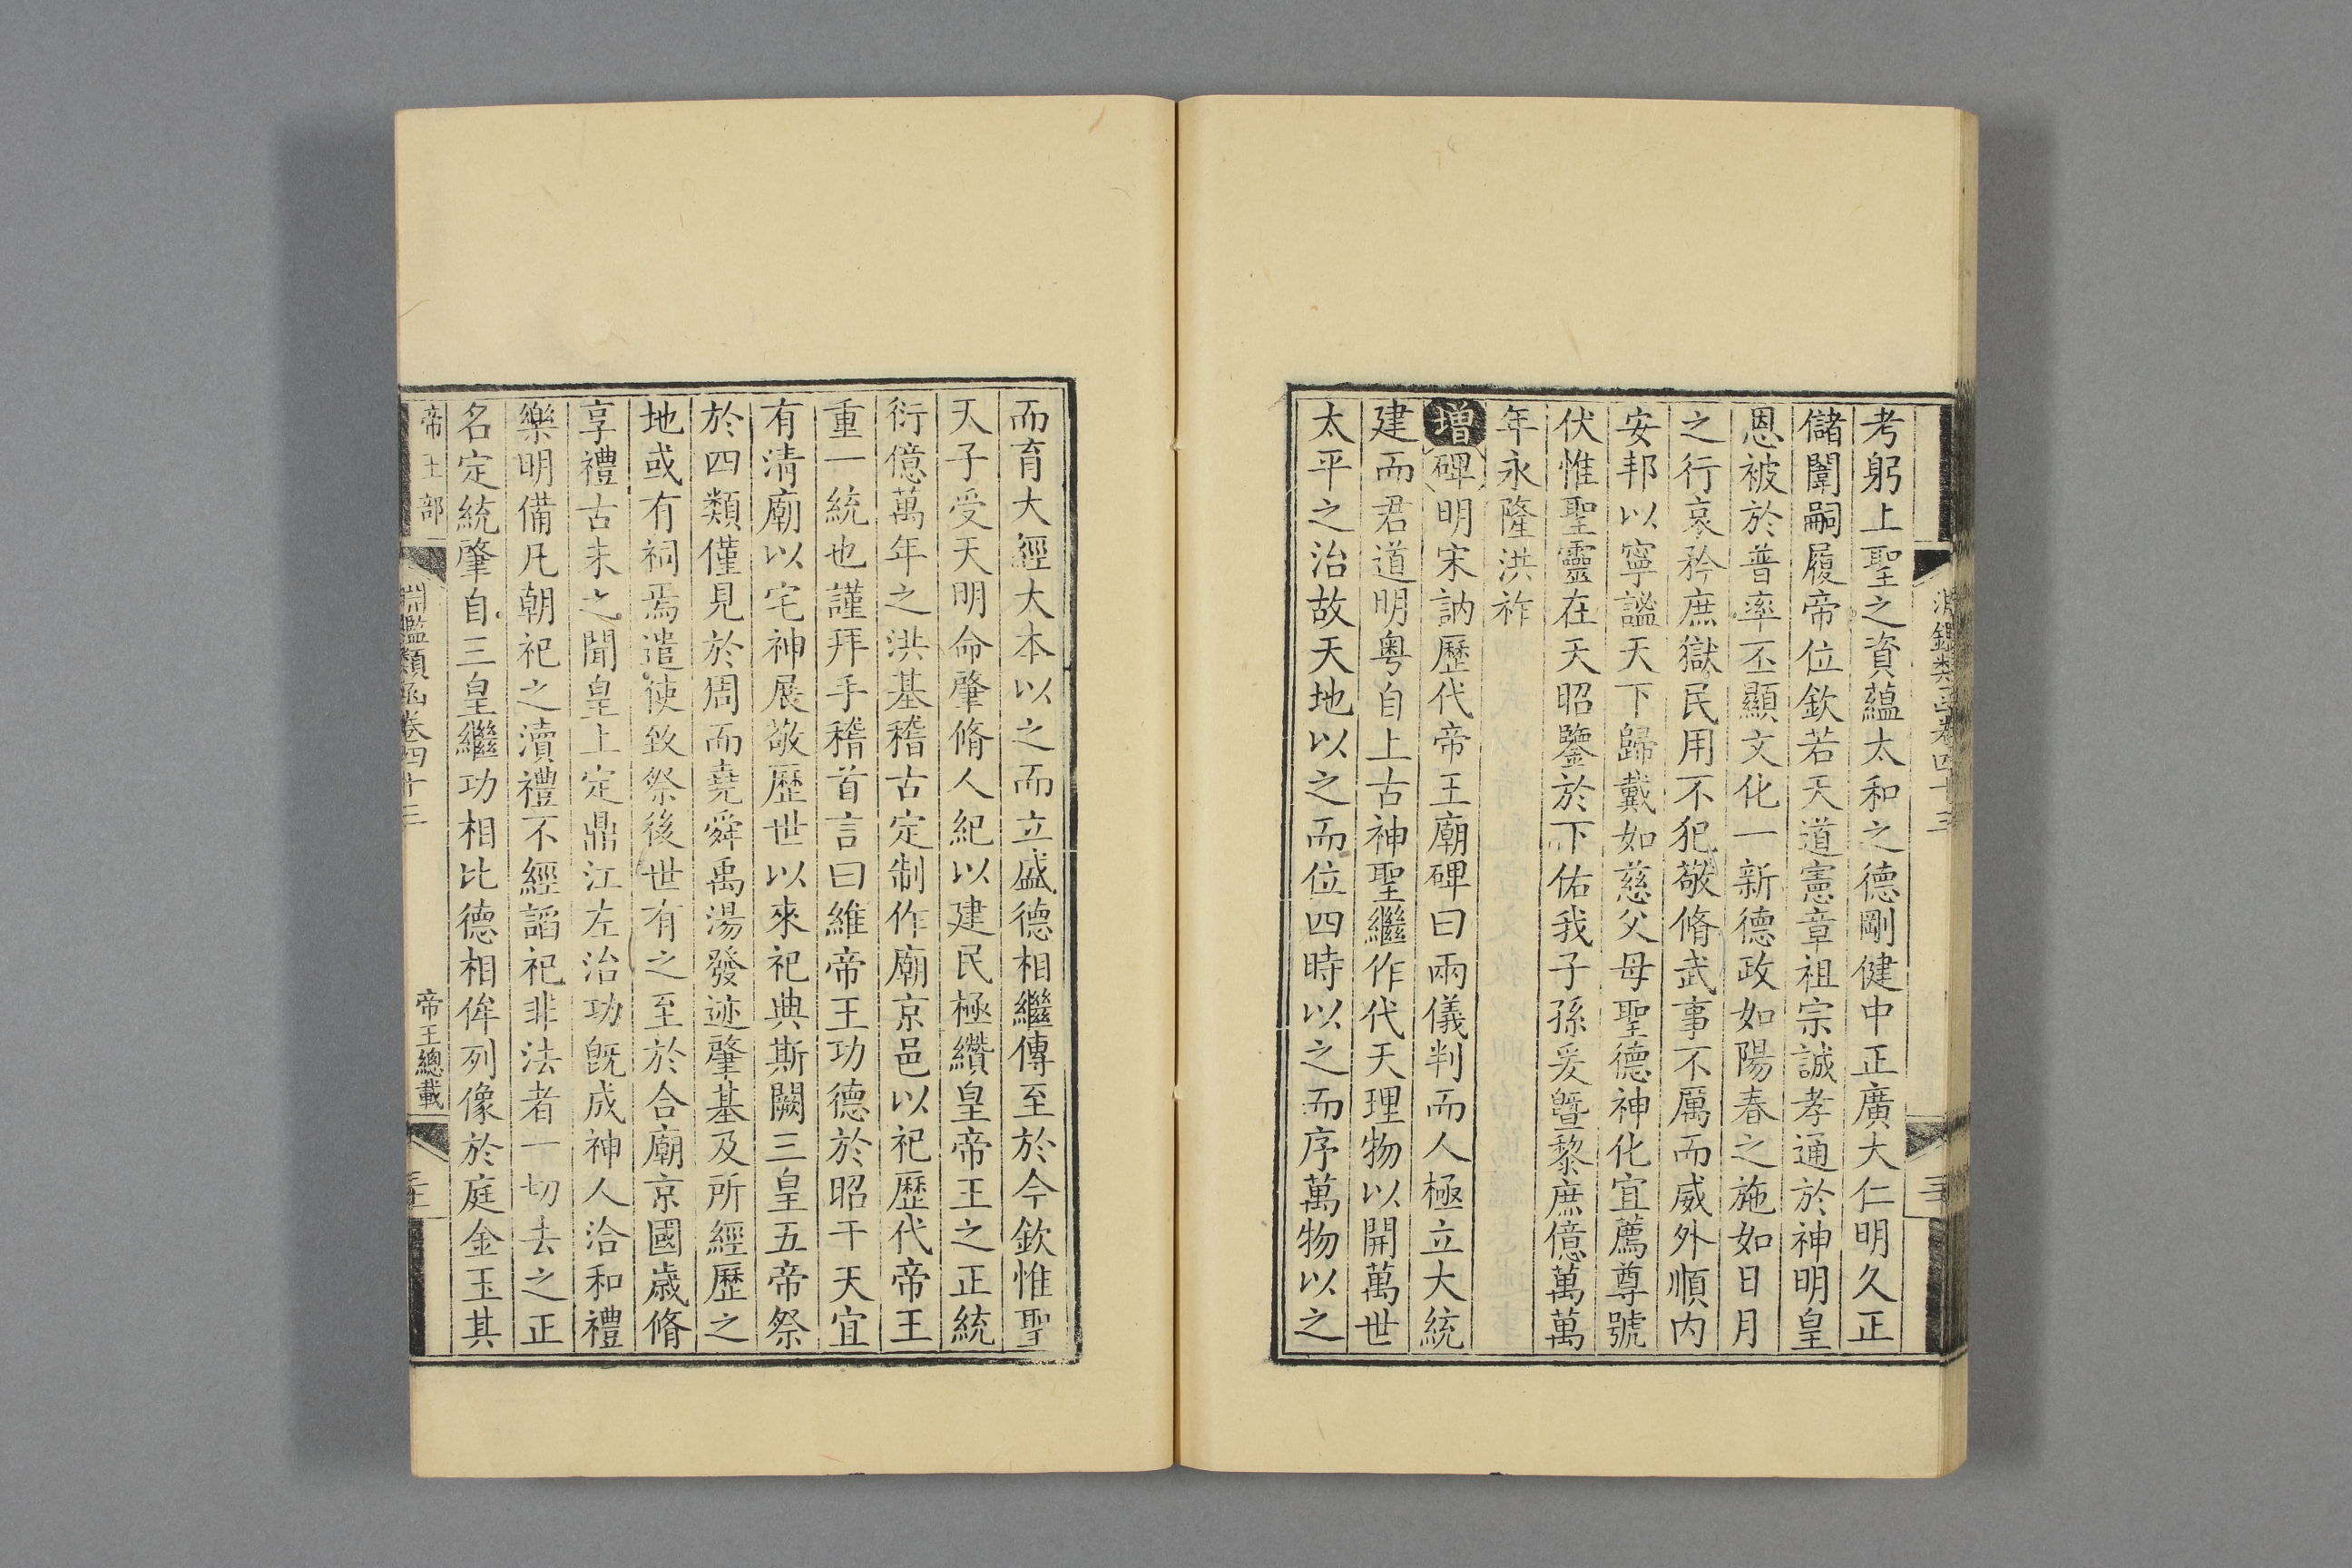 淵鑑類函卷四十三
考躬上聖之資蘊太和之德剛健中正廣大仁明久正
儲闈嗣履帝位欽若天道憲章祖宗誠孝通於神明皇
恩被於普率丕顯文化一新德政如陽春之施如日月
之行哀矜庶獄民用不犯敬脩武事不厲而威外順内
安邦以寧謐天下歸戴如慈父母聖德神化宜薦尊號
伏惟聖靈在天昭鑒於下佑我子孫爰曁黎庶億萬萬
年永隆洪祚
增碑明宋訥歷代帝王廟碑曰兩儀判而人極立大統
建而君道明粤自上古神聖繼作代天理物以開萬世
太平之治故天地以之而位四時以之而序萬物以之
而育大經大本以之而立盛德相繼傳至於今欽惟聖
天子受天明命肇脩人紀以建民極纘皇帝王之正統
衍億萬年之洪基稽古定制作廟京邑以祀歷代帝王
重一統也謹拜手稽首言曰維帝王功德於昭干天宜
有清廟以宅神展敬歷世以來祀典斯闕三皇五帝祭
於四類僅見於周而堯舜禹湯發迹肇基及所經歷之
地或有祠焉遣使致祭後世有之至於合廟京國歲脩
享禮古未之聞皇上定鼎江左治功旣成神人洽和禮
樂明備凡朝祀之瀆禮不經謟祀非法者一切去之正
名定統肇自三皇繼功相比德相侔列像於庭金玉其
帝王部
淵鑑類函卷四十三
帝王總載